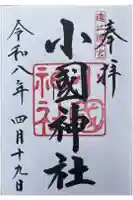 奉拝
小國神社
令和八年 四月十九日